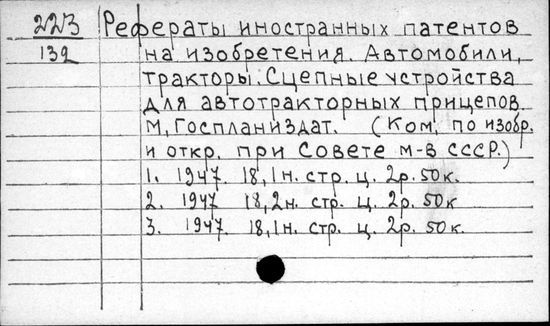 223 Рефераты иностранных патентов
139 на изобретения. Автомобили,
тракторы. Сцепные устройства
для автотракторных прицепов.
М, Госпланиздат. (Ком, по изобр.
и откр. при Совете м-в СССР.)
1. 1947. 18, 1н. стр. ц. 2р. 50к.
2. 1947 18, 2н. стр. ц. 2р. 50к
3. 1947. 18, 1н. стр. ц. 2р. 50к.